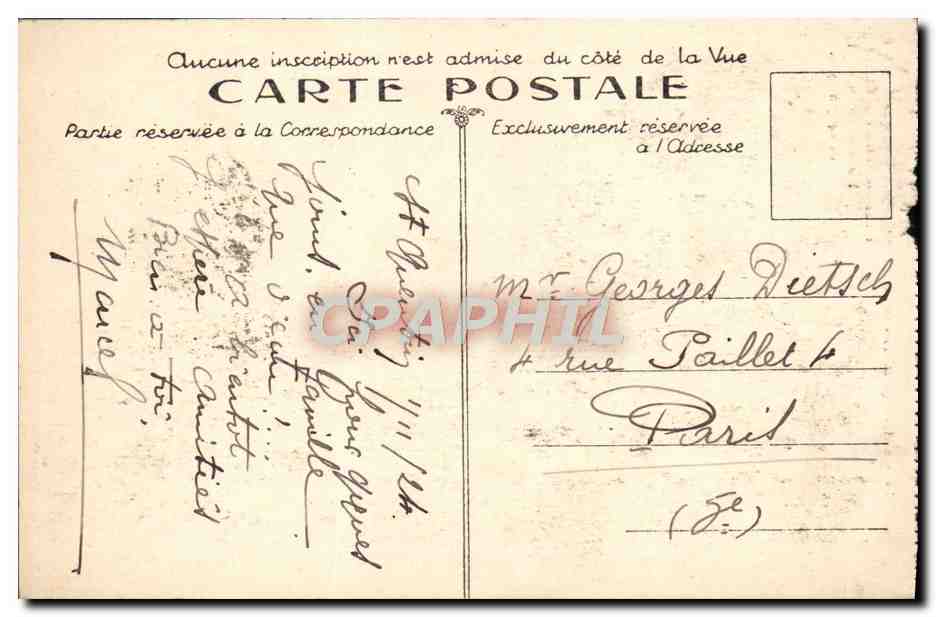 Aucune inscription n'est admise du côté de la Vue
CARTE POSTALE
Partie réservée à la Correspondance
Exclusivement réservée
à l'Adresse
St Quentin 1/11/24.
Ici pour quelques
jours, en famille
Vue d'ici!
A bientôt
chère amitiés
Bien à toi,
Marcel
Mr Georges Dietsch
4 rue Paillet 4
Paris
(5e)
CPAPHIL